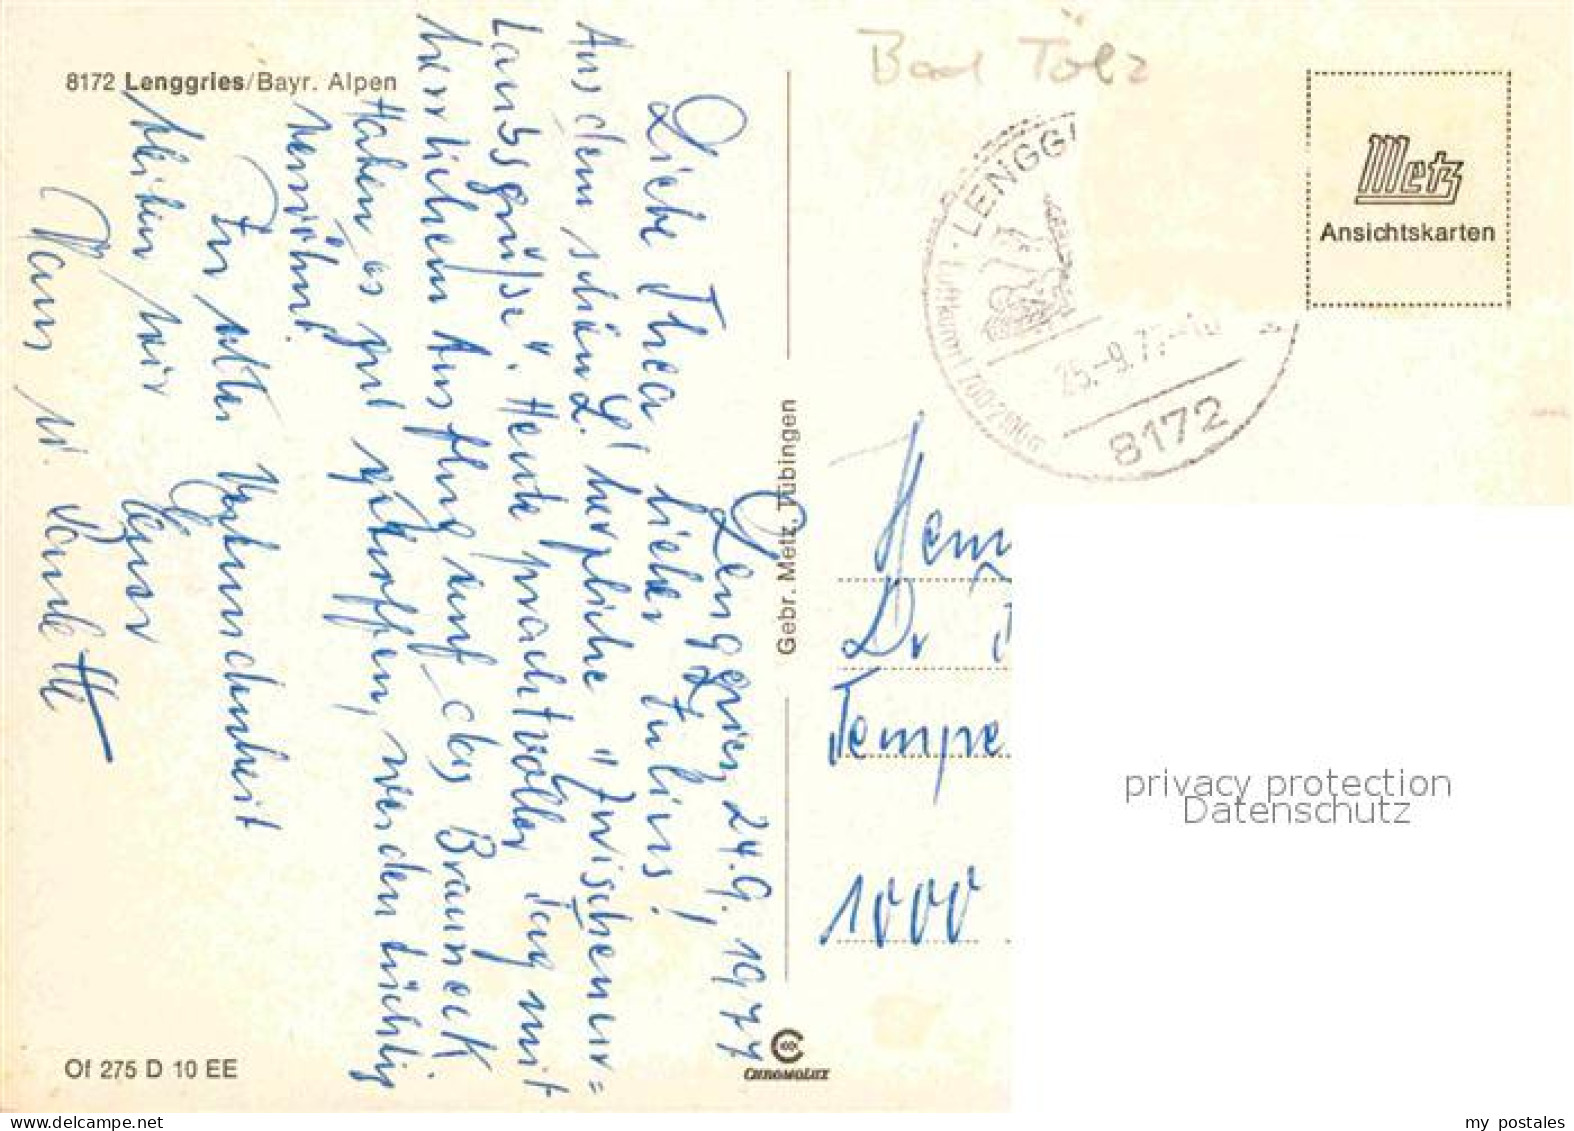 8172 Lenggries/Bayr. Alpen
Lenggries, 24.9.1977
Liebe Thea, lieber Julius!
Aus dem schönen L. herzliche "Zwischenur=
laubsgrüße". Heute prachtvoller Tag mit
herrlichem Ausflug auf das Brauneck.
Haben es gut getroffen, werden tüchtig
verwöhnt.
In alter Verbundenheit
bleiben wir Eure
Hans u.
Of 275 D 10 EE
Gebr. Metz, Tübingen
CHROMOLUX
Bad Tölz
LENGG
Luftkurort 700-2100 m
25.-9.77
8172
Metz
Ansichtskarten
Dr
Tempe
1000
privacy protection
Datenschutz
my postales